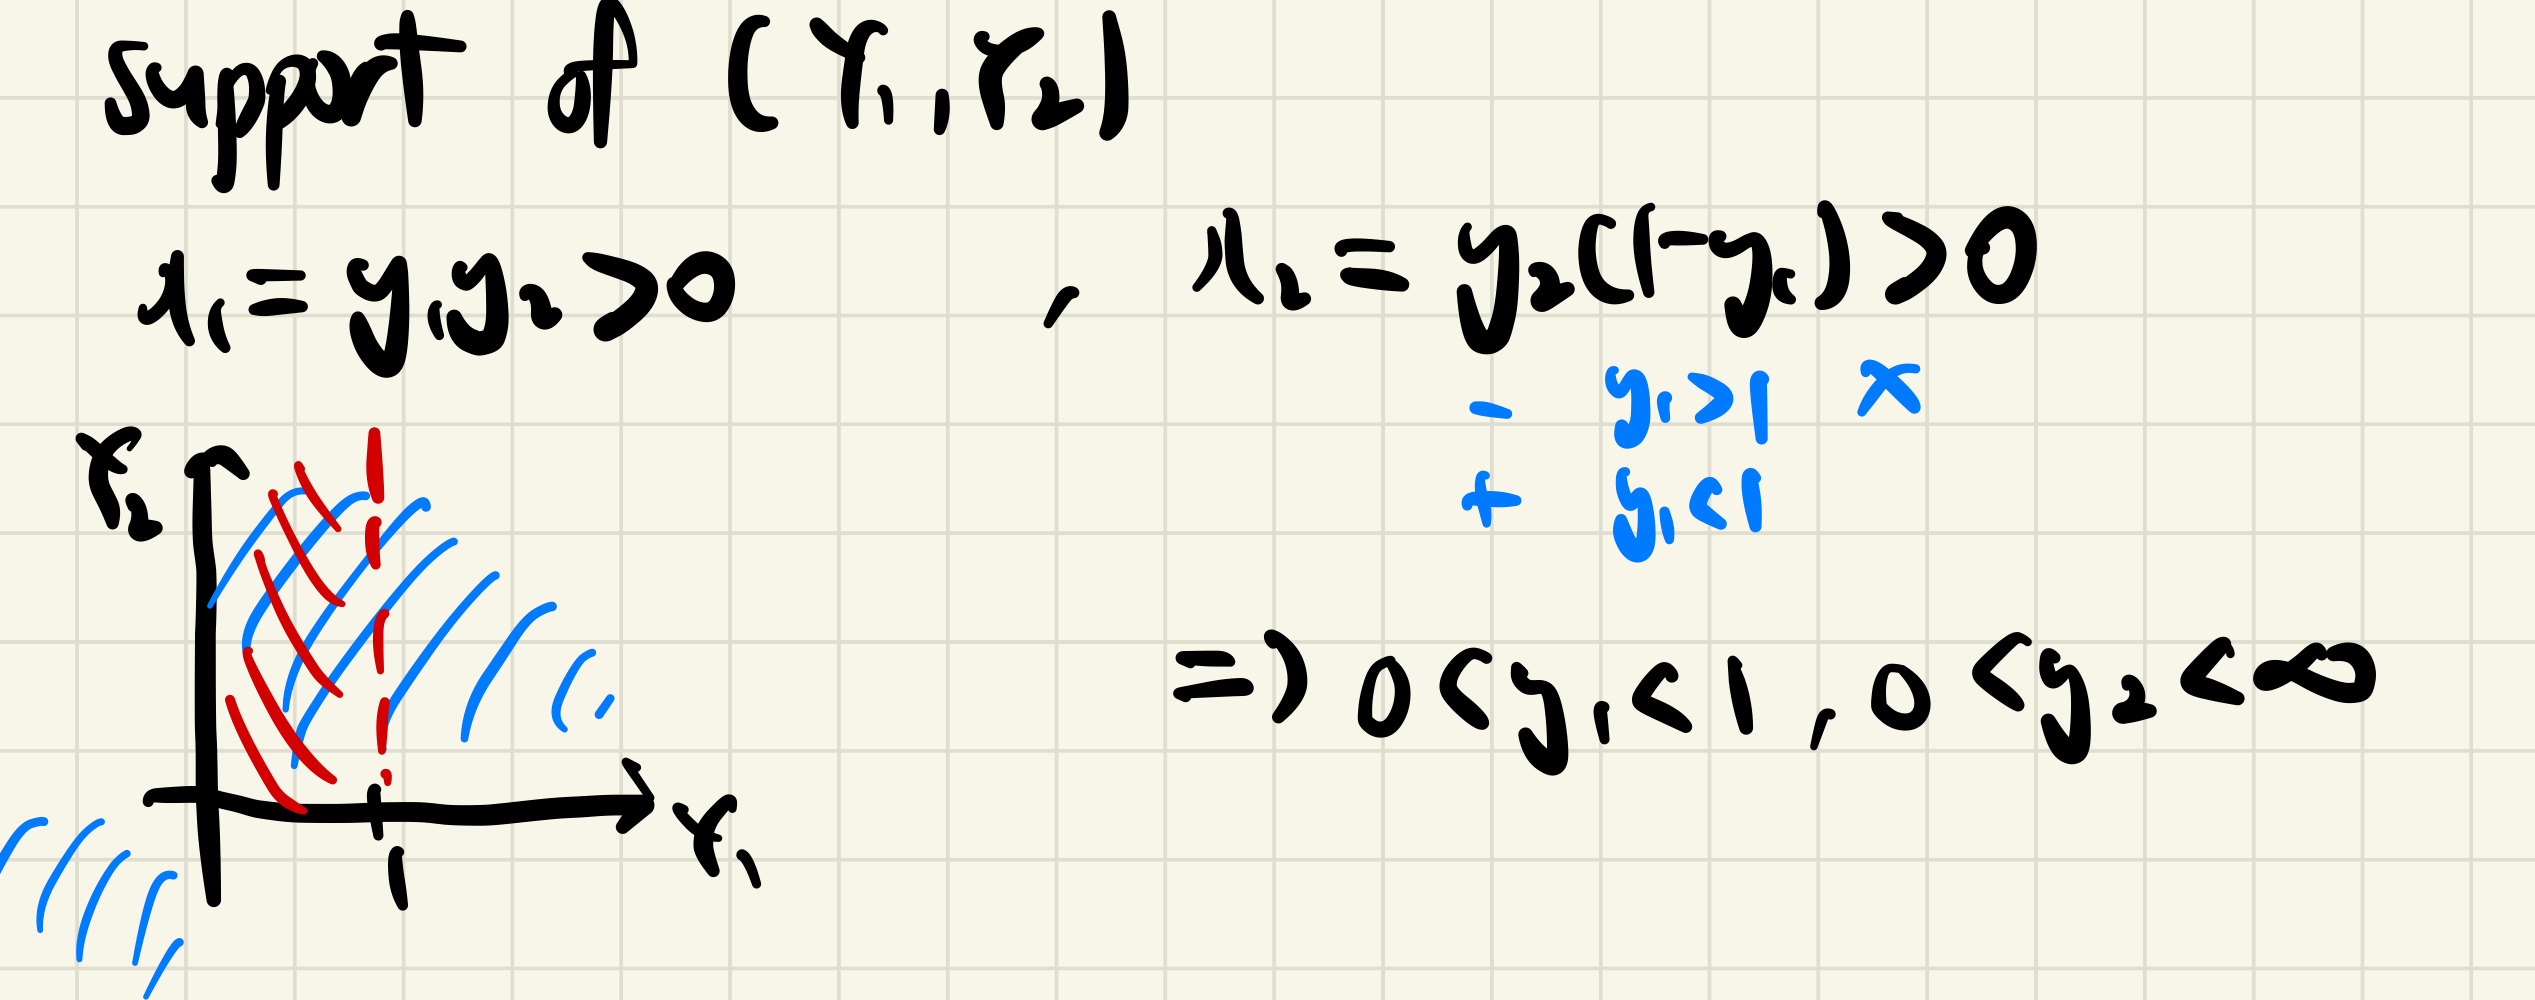 support of (Y₁, Y₂)
x₁ = y₁y₂ > 0 , x₂ = y₂(1-y₁) > 0
- y₁ > 1 ×
+ y₁ < 1
Y₂
⇒ 0 < y₁ < 1, 0 < y₂ < ∞
Y₁
1